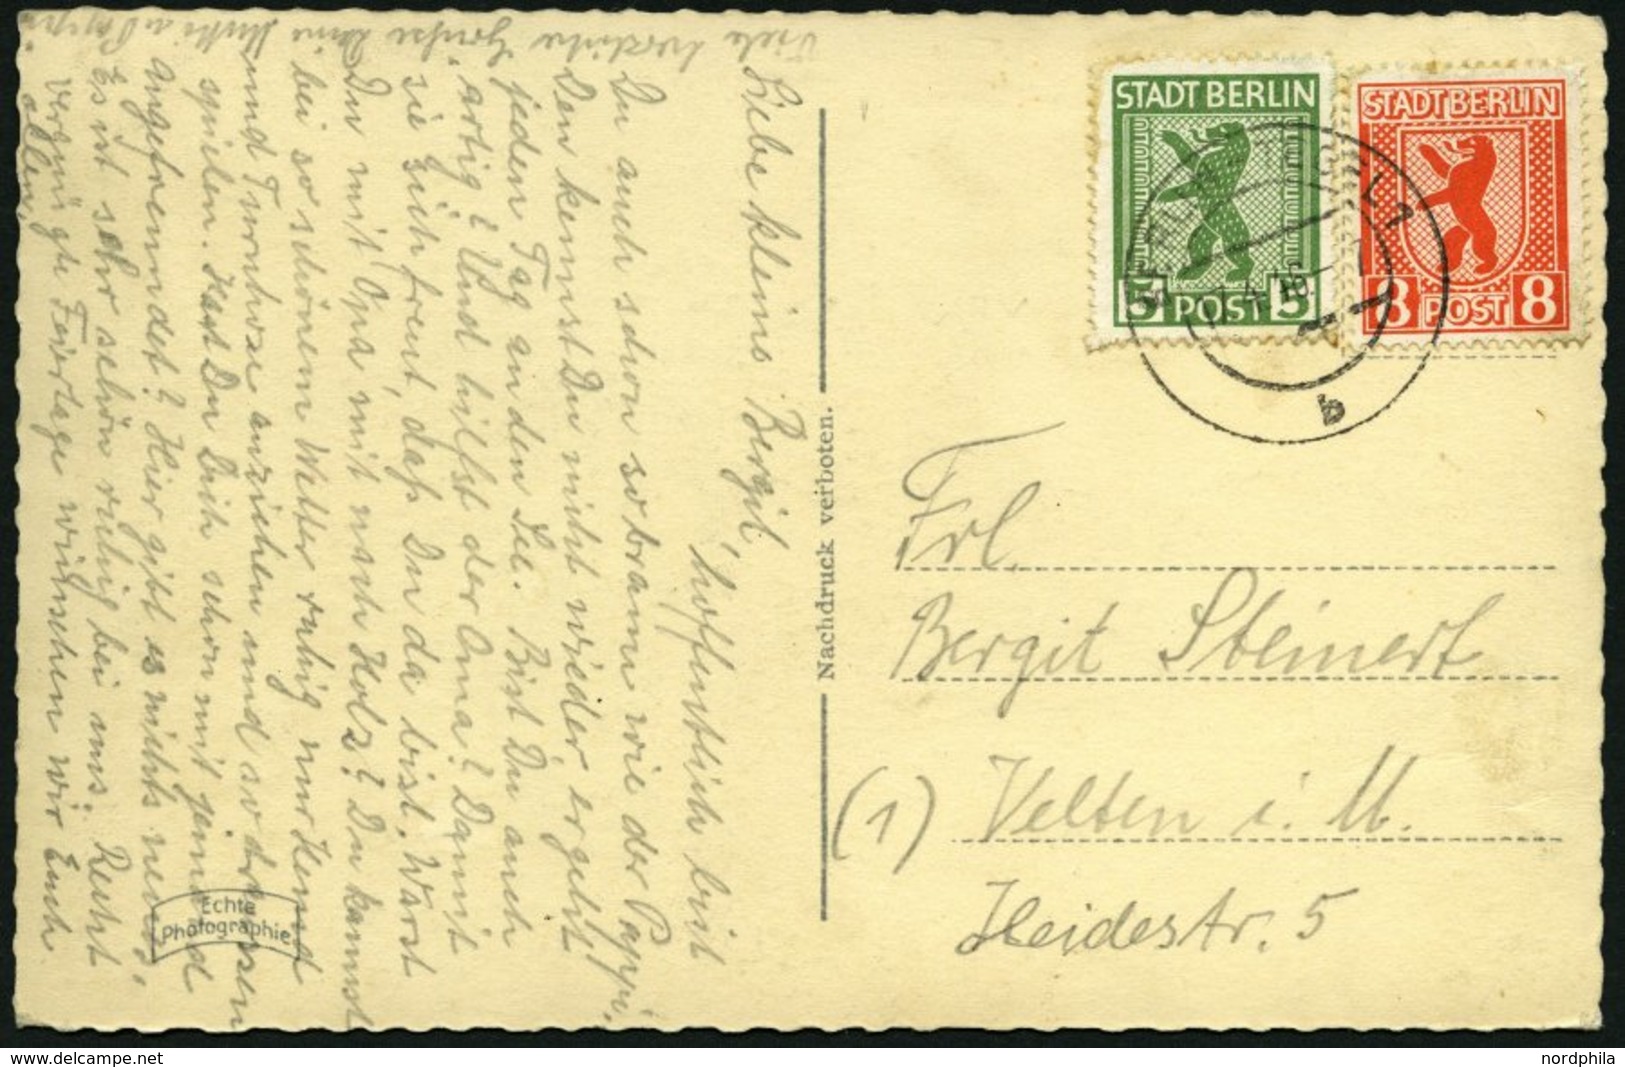 Liebe kleine Bergit,
hoffentlich bist
Du auch schon so braun wie der Pappi.
Den kennst Du nicht wieder, er geht
jeden Tag an den See. Bist Du auch
artig? Und hilfst der Oma? Damit
sie sich freut, daß Du da bist. Warst
Du mit Opa mit nach Holz? Du kannst
bei so schönem Wetter ruhig nur Hemd
und Turnhose anziehen und so draussen
spielen. Hast Du Dich schon mit jemand
angefreundet? Hier gibt es nichts neues,
Es ist sehr schön ruhig bei uns. Recht
vergnügte Feiertage wünschen wir Euch
allen,
Viele herzliche Grüße Deine Mutti u. Pappi.
Echte
Photographie
Nachdruck verboten.
STADT BERLIN
5 POST 5
STADT BERLIN
8 POST 8
b
Frl.
Bergit Steinert
(1) Velten i. M.
Heidestr. 5
nordphila.delcampe.net
nordphila